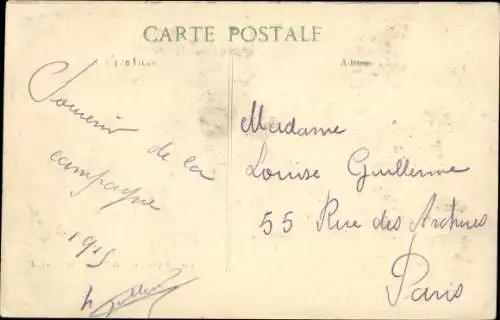 CARTE POSTALE
Adresse
Souvenir
de la
campagne
1915
Madame
Louise Guillerme
55 Rue des Archives
Paris